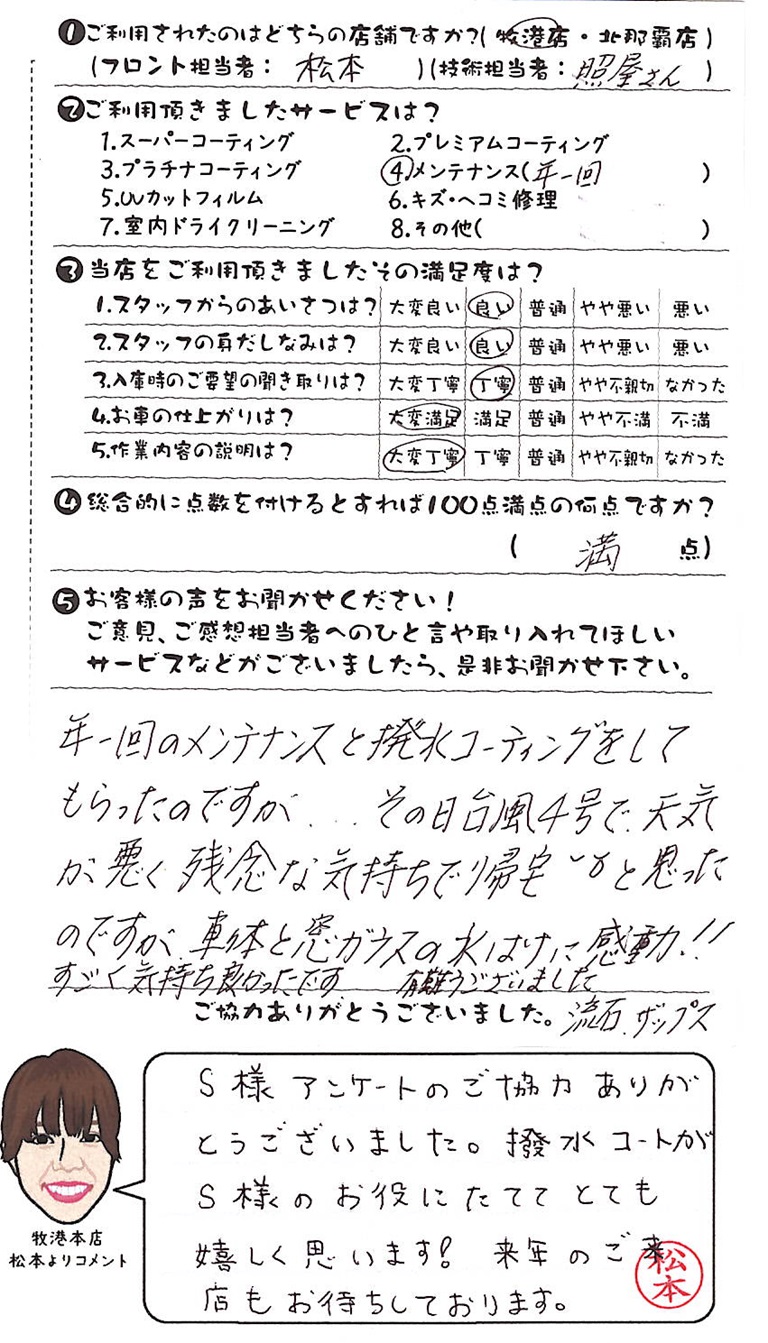 ❶ご利用されたのはどちらの店舗ですか?(牧港店・北那覇店)
(フロント担当者: 松本 )(技術担当者: 照屋さん )
❷ご利用頂きましたサービスは?
1.スーパーコーティング 2.プレミアムコーティング
3.プラチナコーティング ④メンテナンス(年一回 )
5.UVカットフィルム 6.キズ・ヘコミ修理
7.室内ドライクリーニング 8.その他( )
❸当店をご利用頂きましたその満足度は?
1.スタッフからのあいさつは? 大変良い 良い 普通 やや悪い 悪い
2.スタッフの身だしなみは? 大変良い 良い 普通 やや悪い 悪い
3.入庫時のご要望の聞き取りは? 大変丁寧 丁寧 普通 やや不親切 なかった
4.お車の仕上がりは? 大変満足 満足 普通 やや不満 不満
5.作業内容の説明は? 大変丁寧 丁寧 普通 やや不親切 なかった
❹総合的に点数を付けるとすれば100点満点の何点ですか?
( 満 点)
❺お客様の声をお聞かせください!
ご意見、ご感想担当者へのひと言や取り入れてほしい
サービスなどがございましたら、是非お聞かせ下さい。
年一回のメンテナンスと撥水コーティングをして
もらったのですが...その日台風4号で、天気
が悪く残念な気持ちで帰宅 と思った
のですが、車体と窓ガラスの水はけに感動!!
すごく気持ち良かったです 有難うございました
ご協力ありがとうございました。流石、ザップス
S様アンケートのご協力ありが
とうございました。撥水コートが
S様のお役にたててとても
嬉しく思います! 来年のご来
店もお待ちしております。
松本
牧港本店
松本よりコメント